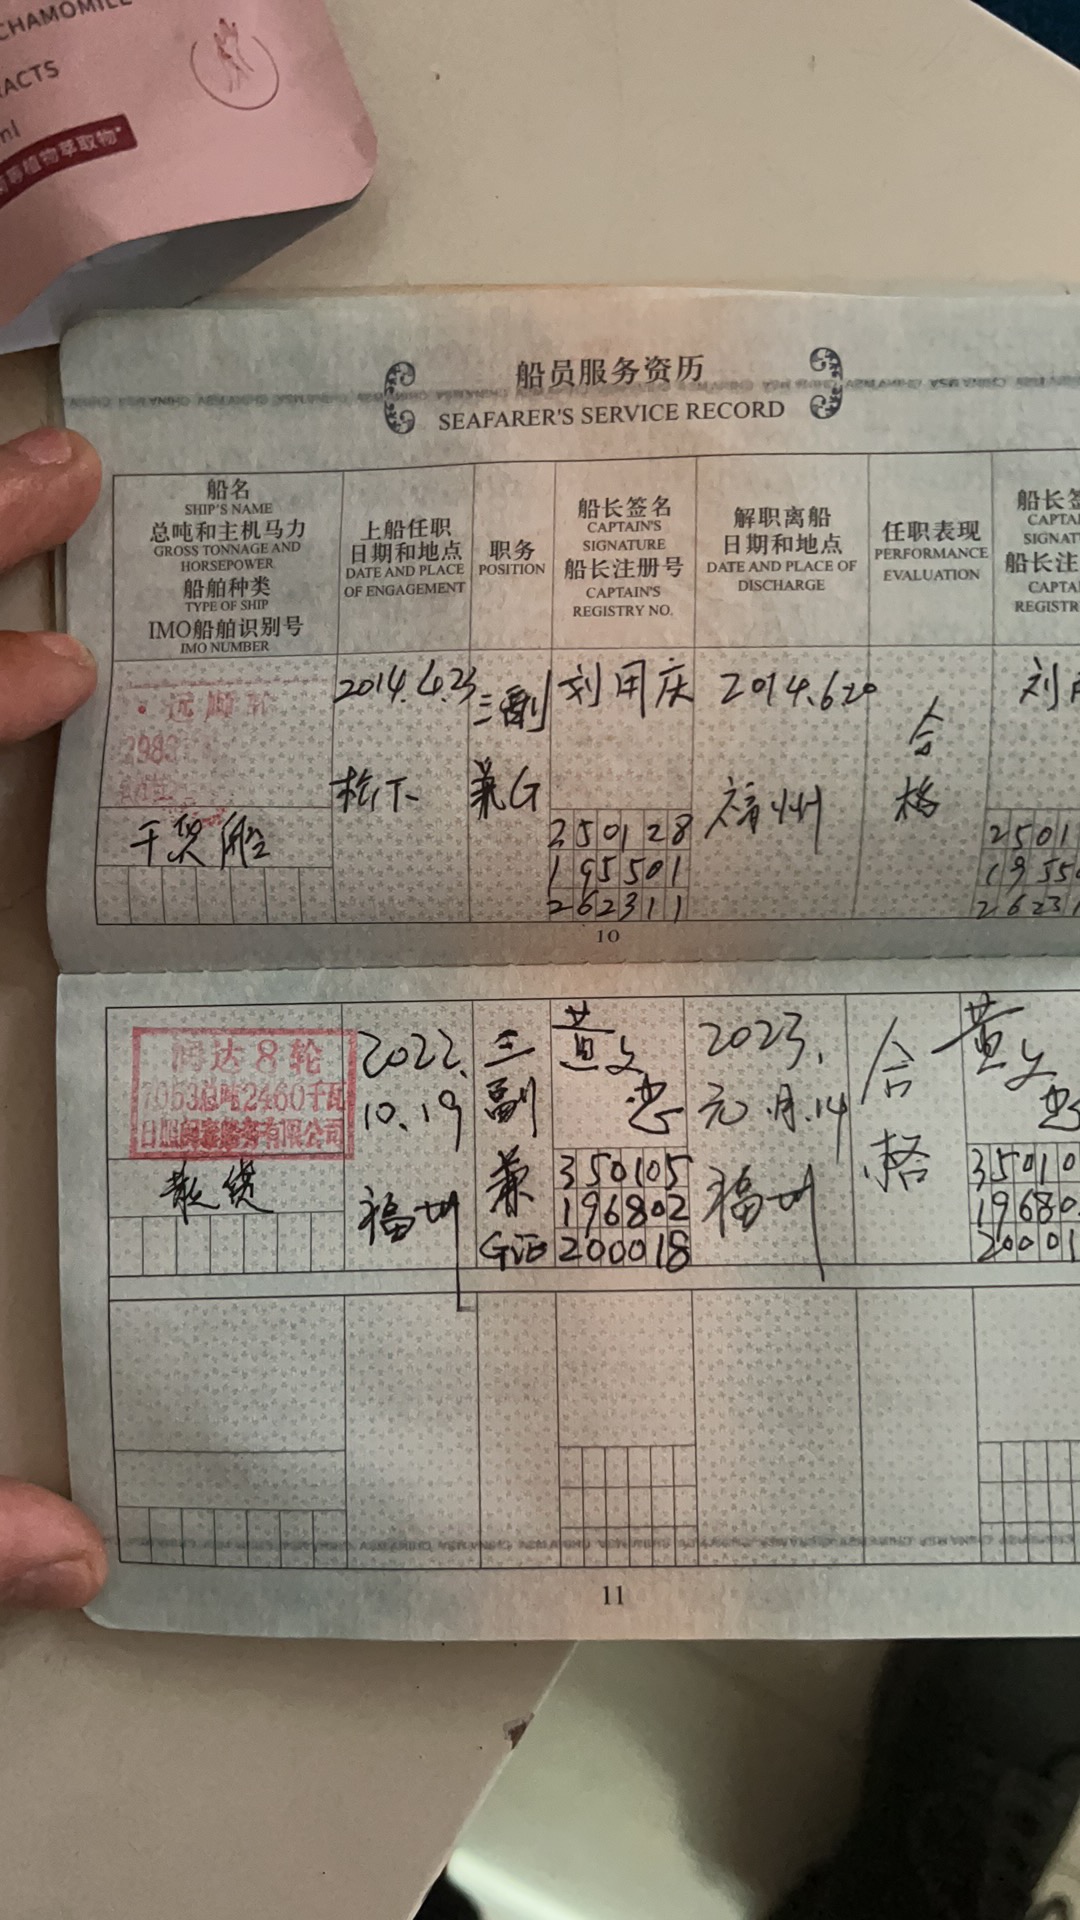 CHAMOMILE
ACTS
ml
等植物萃取物*
船员服务资历
SEAFARER'S SERVICE RECORD
船名
SHIP'S NAME
总吨和主机马力
GROSS TONNAGE AND
HORSEPOWER
船舶种类
TYPE OF SHIP
IMO船舶识别号
IMO NUMBER
上船任职
日期和地点
DATE AND PLACE
OF ENGAGEMENT
职务
POSITION
船长签名
CAPTAIN'S
SIGNATURE
船长注册号
CAPTAIN'S
REGISTRY NO.
解职离船
日期和地点
DATE AND PLACE OF
DISCHARGE
任职表现
PERFORMANCE
EVALUATION
船长签
CAPTA
SIGNAT
船长注
CAPTA
REGISTR
2983
干货船
2014.4.23
松下
三副
兼G
刘用庆
250128
195501
262311
2014.6.20
福州
合
格
刘
2501
1955
26231
10
达8轮
7053总吨2460千瓦
有限公司
散货
2022.
10.19
福州
三
副
兼
GOC
黄文
忠
350105
196802
200018
2023.
元月.14
福州
合
格
黄文
忠
35010
19680
20001
11